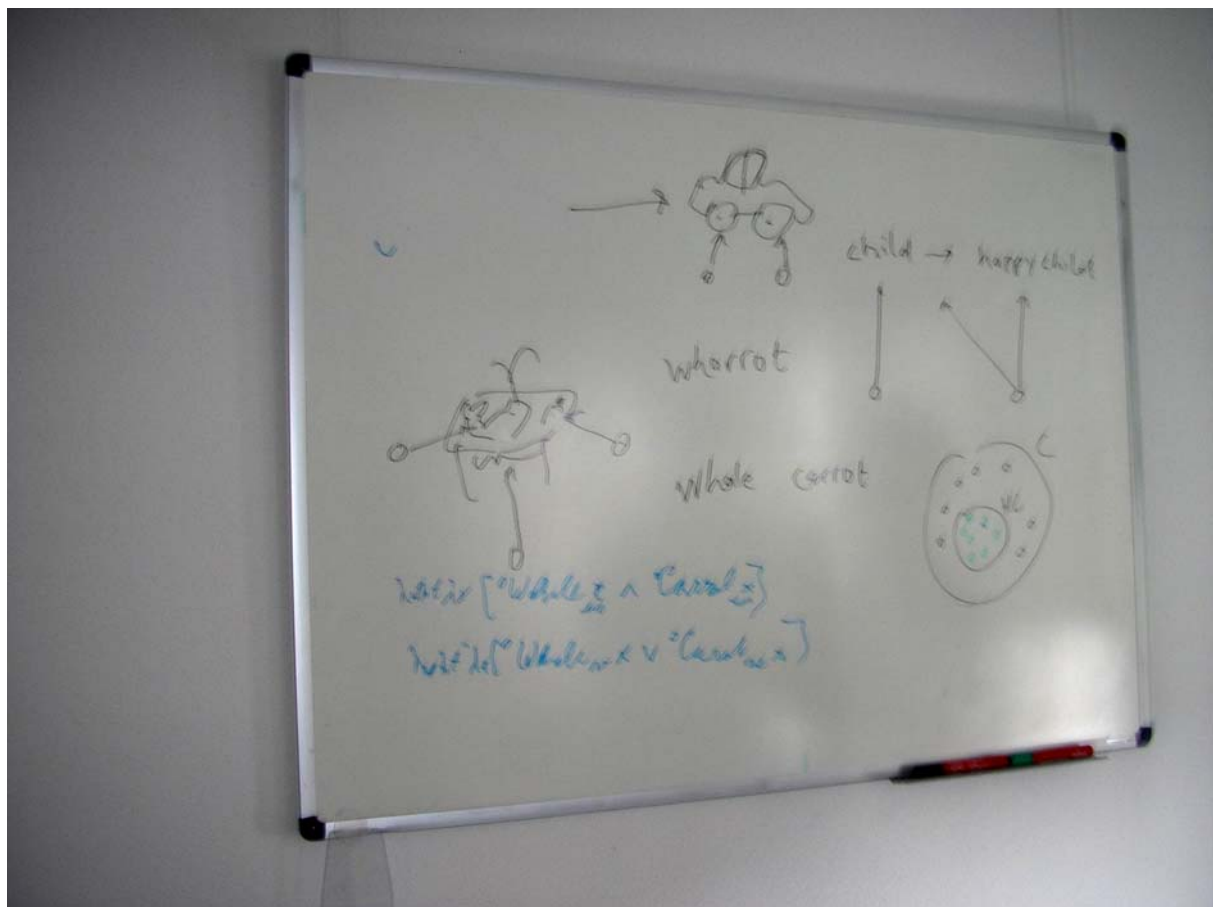 child → happy child
whorrot
Whole carrot
C
WC
[°Whole x ∧ °Carrot x]
[°Whole x ∨ °Carrot x]